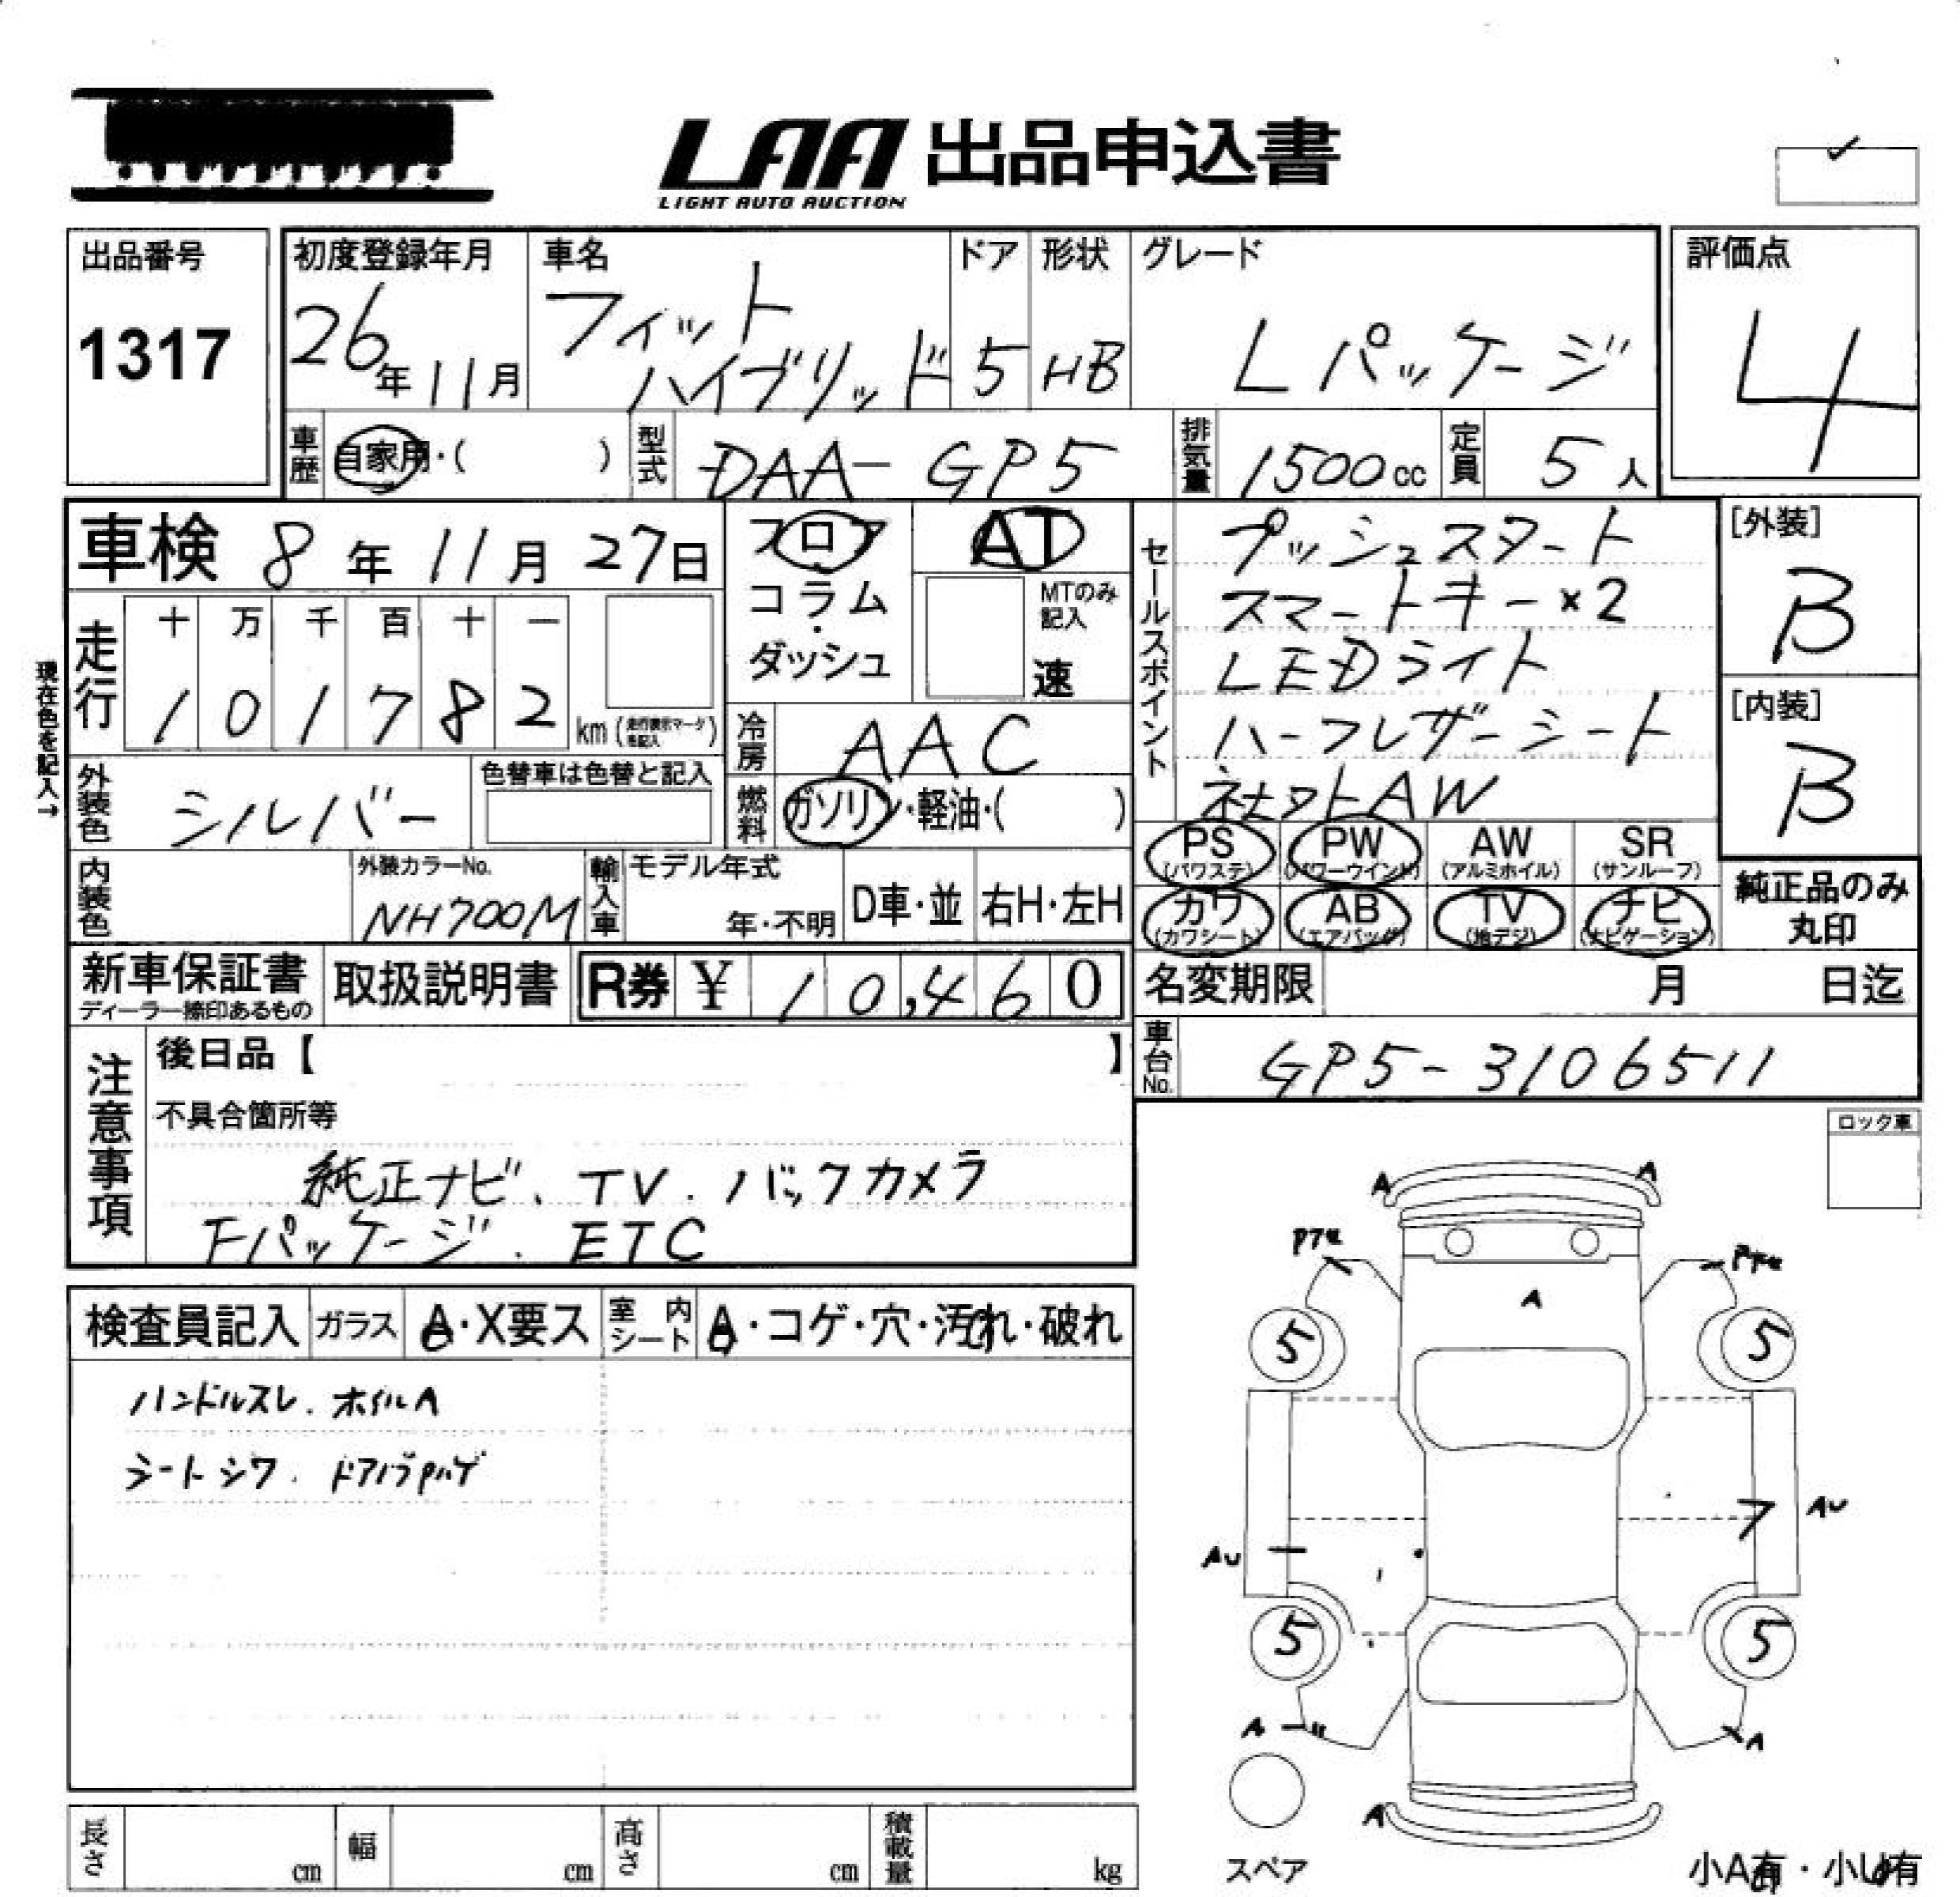 LAA 出品申込書
LIGHT AUTO AUCTION
出品番号
1317
初度登録年月
26年11月
車名
フィット
ハイブリッド
ドア
5
形状
HB
グレード
Lパッケージ
評価点
4
車歴 自家用・( )
型式 DAA-GP5
排気量 1500cc
定員 5人
車検 8年11月27日
フロア
コラム
・
ダッシュ
AT
MTのみ
記入
速
セールスポイント
プッシュスタート
スマートキー×2
LEDライト
ハーフレザーシート
社外AW
[外装]
B
[内装]
B
現在色を記入→
走行
十 万 千 百 十 一
1 0 1 7 8 2 km
冷房 AAC
外装色 シルバー
色替車は色替と記入
燃料 ガソリン・軽油・( )
PS (パワステ)
PW (パワーウインド)
AW (アルミホイル)
SR (サンルーフ)
カワ (カワシート)
AB (エアバッグ)
TV (地デジ)
ナビ (ナビゲーション)
純正品のみ
丸印
内装色
外装カラーNo.
NH700M
輸入車
モデル年式
年・不明
D車・並
右H・左H
新車保証書
ディーラー捺印あるもの
取扱説明書
R券 ¥ 10,460
名変期限 月 日迄
車台No. GP5-3106511
注意事項
後日品【 】
不具合箇所等
純正ナビ、TV、バックカメラ
Fパッケージ、ETC
ロック車
検査員記入
ガラス
A・X要ス
室内シート
A・コゲ・穴・汚れ・破れ
ハンドルスレ、ホイルA
シートシワ、
A A
A
5 5
AU AU
5 5
A A
A
スペア
小A有・小U有
長さ cm
幅 cm
高さ cm
積載量 kg